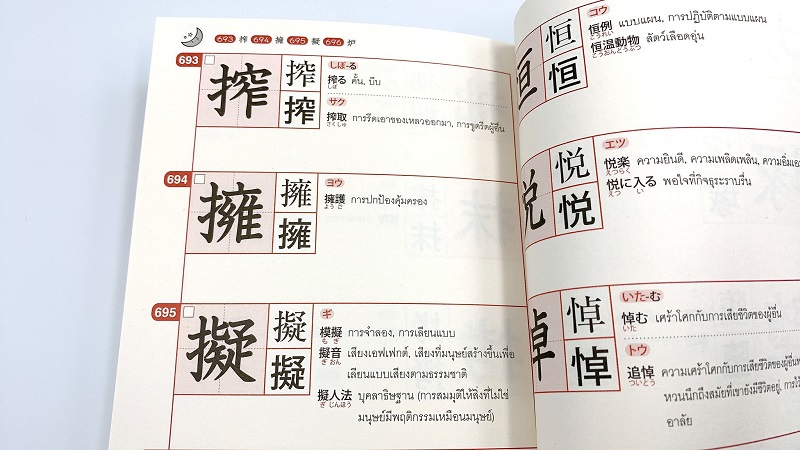 693 搾 694 擁 695 擬 696 炉
693
搾 搾 搾
しぼ-る
搾る คั้น, บีบ
しぼ
サク
搾取 การรีดเอาของเหลวออกมา, การขูดรีดผู้อื่น
さくしゅ
694
擁 擁 擁
ヨウ
擁護 การปกป้องคุ้มครอง
ようご
695
擬 擬 擬
ギ
模擬 การจำลอง, การเลียนแบบ
もぎ
擬音 เสียงเอฟเฟกต์, เสียงที่มนุษย์สร้างขึ้นเพื่อ
ぎおん
เลียนแบบเสียงตามธรรมชาติ
擬人法 บุคลาธิษฐาน (การสมมุติให้สิ่งที่ไม่ใช่
ぎじんほう
มนุษย์มีพฤติกรรมเหมือนมนุษย์)
恒 恒 恒
コウ
恒例 แบบแผน, การปฏิบัติตามแบบแผน
こうれい
恒温動物 สัตว์เลือดอุ่น
こうおんどうぶつ
悦 悦 悦
エツ
悦楽 ความยินดี, ความเพลิดเพลิน,
えつらく
悦に入る พอใจที่กิจธุระราบรื่น
えつ い
悼 悼 悼
いた-む
悼む เศร้าโศกกับการเสียชีวิตของผู้อื่น
いた
トウ
追悼 ความเศร้าโศกกับการเสียชีวิตของผู้อื่น
ついとう
หวนนึกถึงสมัยที่เขายังมีชีวิตอยู่,
อาลัย